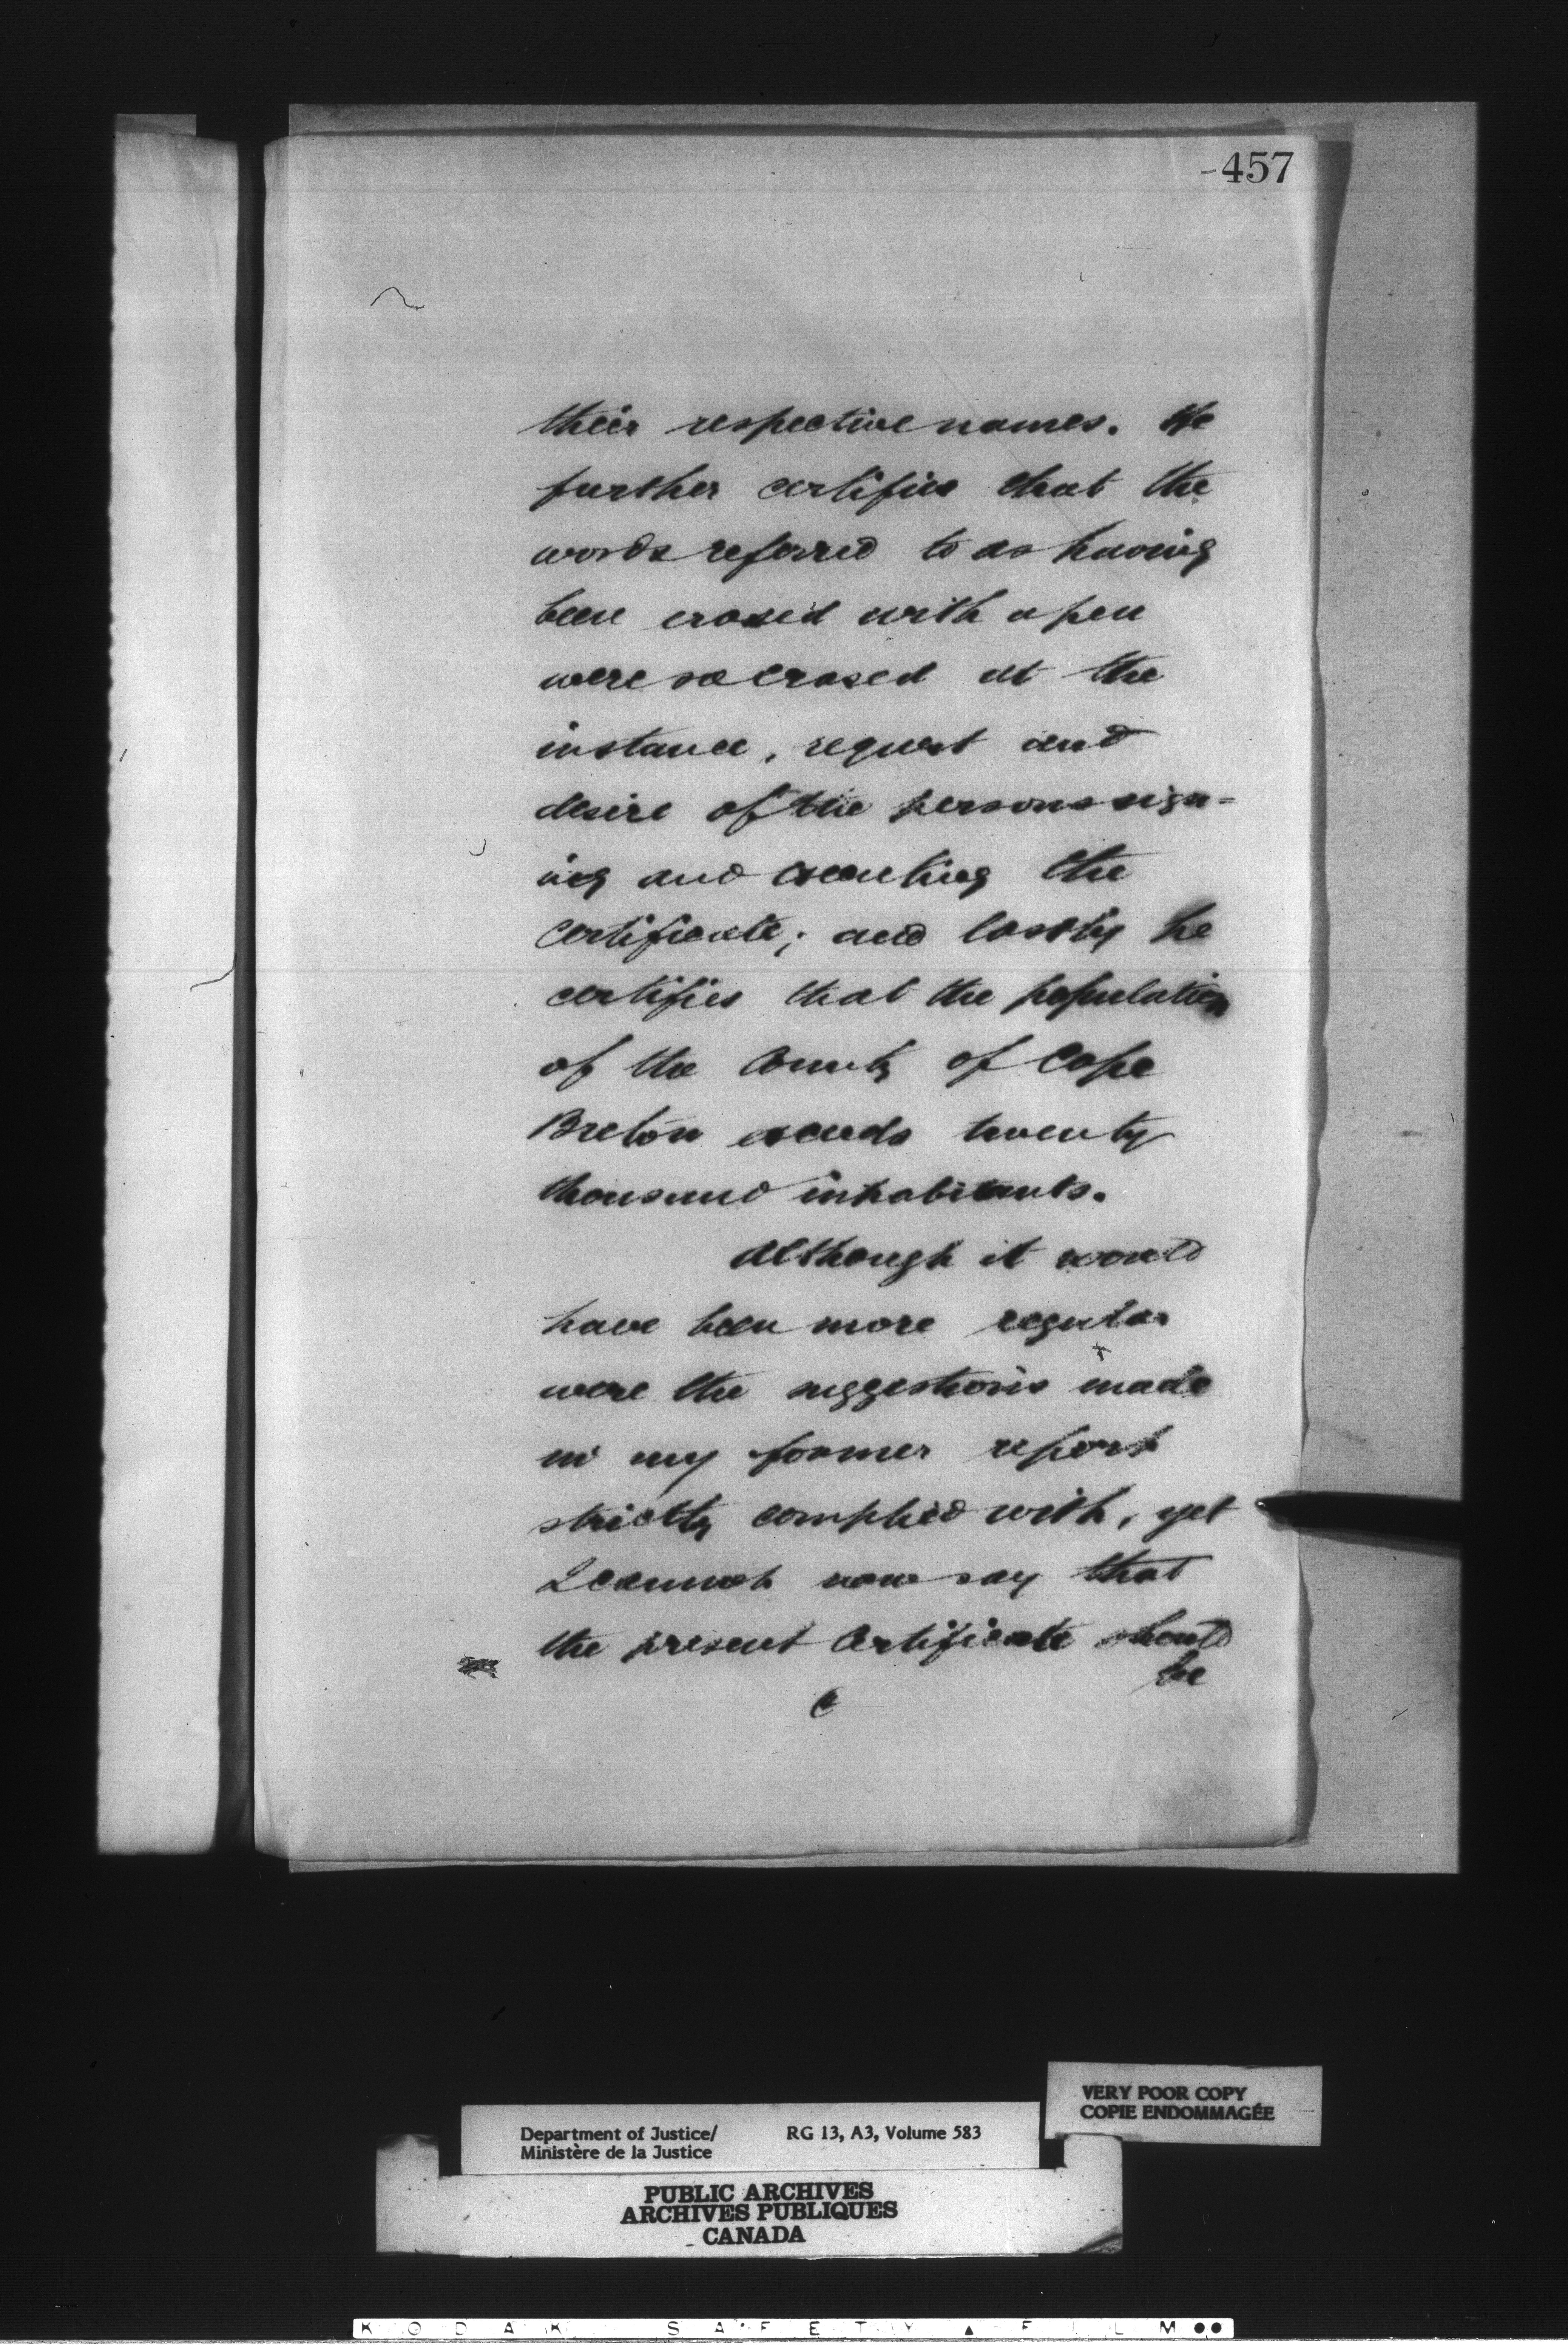 -457
their respective names. He
further certifies that the
words referred to as having
been erased with a pen
were so erased at the
instance, request and
desire of the persons sign=
ing and executing the
certificate; and lastly he
certifies that the population
of the County of Cape
Breton exceeds twenty
thousand inhabitants.
Although it would
have been more regular
were the suggestions made
in my former report
strictly complied with, yet
I cannot now say that
the present Certificate should
be
VERY POOR COPY
COPIE ENDOMMAGÉE
Department of Justice/ RG 13, A3, Volume 583
Ministère de la Justice
PUBLIC ARCHIVES
ARCHIVES PUBLIQUES
CANADA
KODAK SAFETY FILM